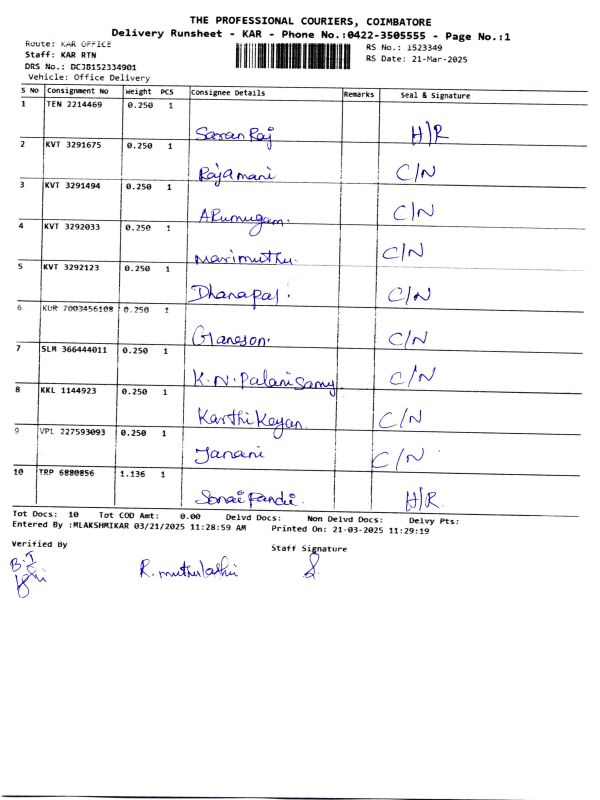 THE PROFESSIONAL COURIERS, COIMBATORE
Delivery Runsheet - KAR - Phone No.:0422-3505555 - Page No.:1
Route: KAR OFFICE
RS No.: 1523349
Staff: KAR RTN
RS Date: 21-Mar-2025
DRS No.: DCJB152334901
Vehicle: Office Delivery
S No Consignment No Weight PCS Consignee Details Remarks Seal & Signature
1 TEN 2214469 0.250 1
Saran Raj H/R
2 KVT 3291675 0.250 1
Rajamani C/N
3 KVT 3291494 0.250 1
ARumugam. C/N
4 KVT 3292033 0.250 1
Marimuthu. C/N
5 KVT 3292123 0.250 1
Dhanapal. C/N
6 KUR 7003456108 0.250 1
Ganeson. C/N
7 SLM 366444011 0.250 1
K.N.Palanisamy C/N
8 KKL 1144923 0.250 1
Karthikeyan C/N
9 VPL 227593093 0.250 1
Janani C/N
10 TRP 6880856 1.136 1
Sonai Pandi H/R.
Tot Docs: 10 Tot COD Amt: 0.00 Delvd Docs: Non Delvd Docs: Delvy Pts:
Entered By :MLAKSHMIKAR 03/21/2025 11:28:59 AM Printed On: 21-03-2025 11:29:19
Verified By
Staff Signature
R. muthulakshmi